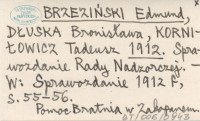 BRZEZIŃSKI Edmund,
DŁUSKA Bronisława, KORNI-
ŁOWICZ Tadeusz 1912. Spra-
wozdanie Rady Nadzorczej.
W: Sprawozdanie 1912 F,
s. 55-56.
Pomoc Bratnia w Zakopanem.